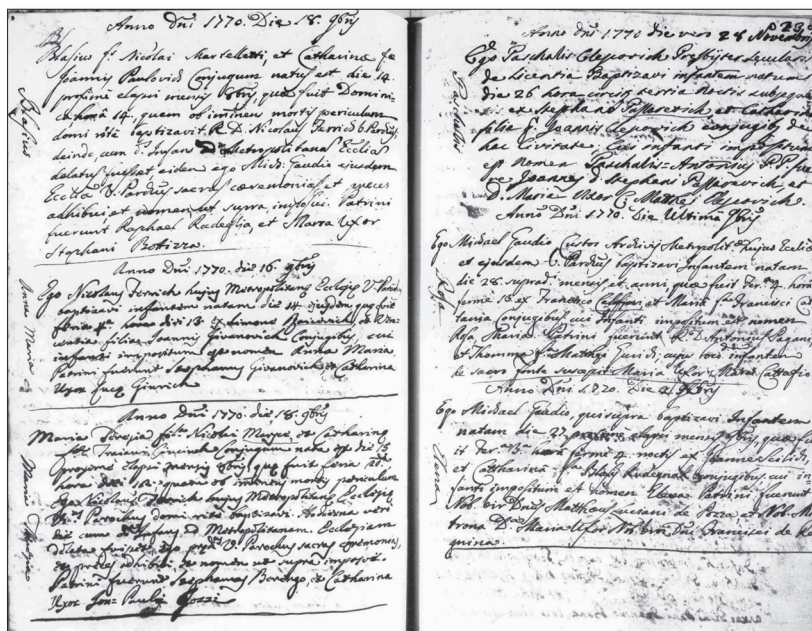 Anno Dñi 1770. Die 18. 9bris
Blasius f. Nicolai Martelletti, et Catharinæ fe
Joannis Paulovich Conjugum natus est die 14.
proximè elapsi mensis 8bris, quæ fuit Domini-
ca horâ 14, quem ob iminens mortis periculum
domi ritè baptizavit R. D. Nicolaus Ferrich V. Parochus,
deinde, cum Infans ad Metropolitanam Ecclia
delatus fuisset eidem ego Mich: Gaudio ejusdem
Ecclia V. Parochus sacras cæremonias, et preces
adhibui et nomen ut supra imposui. Patrini
fuerunt Raphael Radeglia, et Marra Uxor
Stephani Bottizza.
Blasius
Anno Dñi 1770. die 16. 9bris
Ego Nicolaus Ferrich hujus Metropolitanæ Ecclesiæ V. Parochus
baptizavi infantem natam die 14 ejusdem quæ fuit
feria 4. hora diei 13 ex Simone et
filia Joannis Givanovich Conjugibus, cui
infanti impositum est nomen Anna Maria
Patrini fuerunt Stephanus Givanovich et Catharina
Uxor Lucæ Ginrich
Anna Maria
Anno Dñi 1770. die 18. 9bris
Maria Teresia filia Nicolai et Catharinæ
filiæ Traiani Conjugum nata est die 15
proximè elapsi mensis 8bris quæ fuit feria
hora diei 12. quam ob iminens mortis periculum
Ego Nicolaus Ferrich hujus Metropolitanæ Ecclesiæ
V. Parochus domi ritè baptizavi. Hodierna verò
die cum Infans ad Metropolitanam Ecclesiam
delata fuisset, ego præd. V. Parochus sacras cæremonias,
et preces adhibui et nomen ut supra imposui.
Patrini fuerunt Stephanus Berengo, et Catharina
Uxor Pauli Gozzi
Maria Teresia
Anno Dñi 1770 die vero 28 Novembris
Ego Paschalis Clescovich Presbyter Secularis
de Licentia Baptizavi infantem natum
die 26 hora circiter tertia noctis subsequen
ex Stephano Passarevich et Catharina
filia q. Joannis Clescovich conjugibus de
hac Civitate. Cui infanti impositum
est nomen Paschalis-Antonius P.P. fue
re Joannes q. Stephani Passarevich, et
D. Maria Uxor Matthei Clescovich.
Paschalis
Anno Dñi 1770. Die Ultima 9bris
Ego Michael Gaudio Custos Archivii Metropolitæ hujus Ecclia
et ejusdem V. Parochus baptizavi Infantem natam
die 28 suprad. mensis et anni, quæ fuit Fer. 4. horâ
ferme 15 ex Francisco et Maria f. Francisci Ca
tania Conjugibus cui Infanti impositum est nomen
Rosa Maria. Patrini fuerunt R. D. Antonius Pagani,
et Thomas f. Matthæi Juridi, cujus loco infantem
de sacro fonte suscepit Maria Uxor Cattagio
Rosa
Anno Dñi 1770. Die 2. Xbris
Ego Michael Gaudio, qui supra baptizavi Infantem
natam die 27 elapsi mensis 9bris, quæ fu
it Fer. 3. hora ferme 4 noctis ex Joanne
et Catharina f. Blasij conjugibus, cui in
fanti impositum est nomen Elena Patrini fuerunt
Nob. vir Dñus Matthæus Luciani de Pozza et Nob. Ma
trona D. Maria Uxor Nob. viri Dñi Francisci de Ra
gnina.
Elena